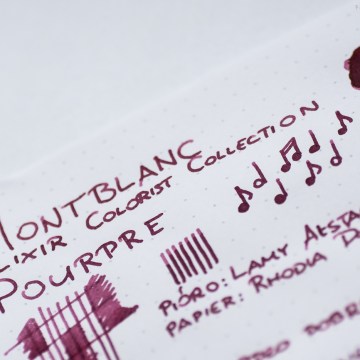 MONTBLANC
ELIXIR COLORIST COLLECTION
POURPRE
PIÓRO: LAMY
PAPIER: RHODIA